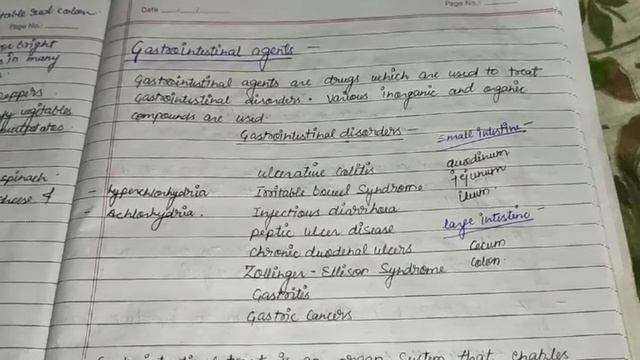 Page No.:
Date
Page No.:
Gastrointestinal agents -
Gastrointestinal agents are drugs which are used to treat
Gastrointestinal disorders. Various inorganic and organic
compounds are used.
Gastrointestinal disorders -
Small intestine -
ulcerative colitis
duodinum
- hyperchlorhydria
Irritable bowel Syndrome
jejunum
ilium.
- Achlorhydria.
Injectious diarrhoea
peptic ulcer disease
large intestine -
chronic duodenal ulcers
Cecum
Zollinger - Ellison Syndrome
Colon.
Gastritis
Gastric Cancers
an organ System that enables
or bright
s in many
eppers
vegitables
spinach.